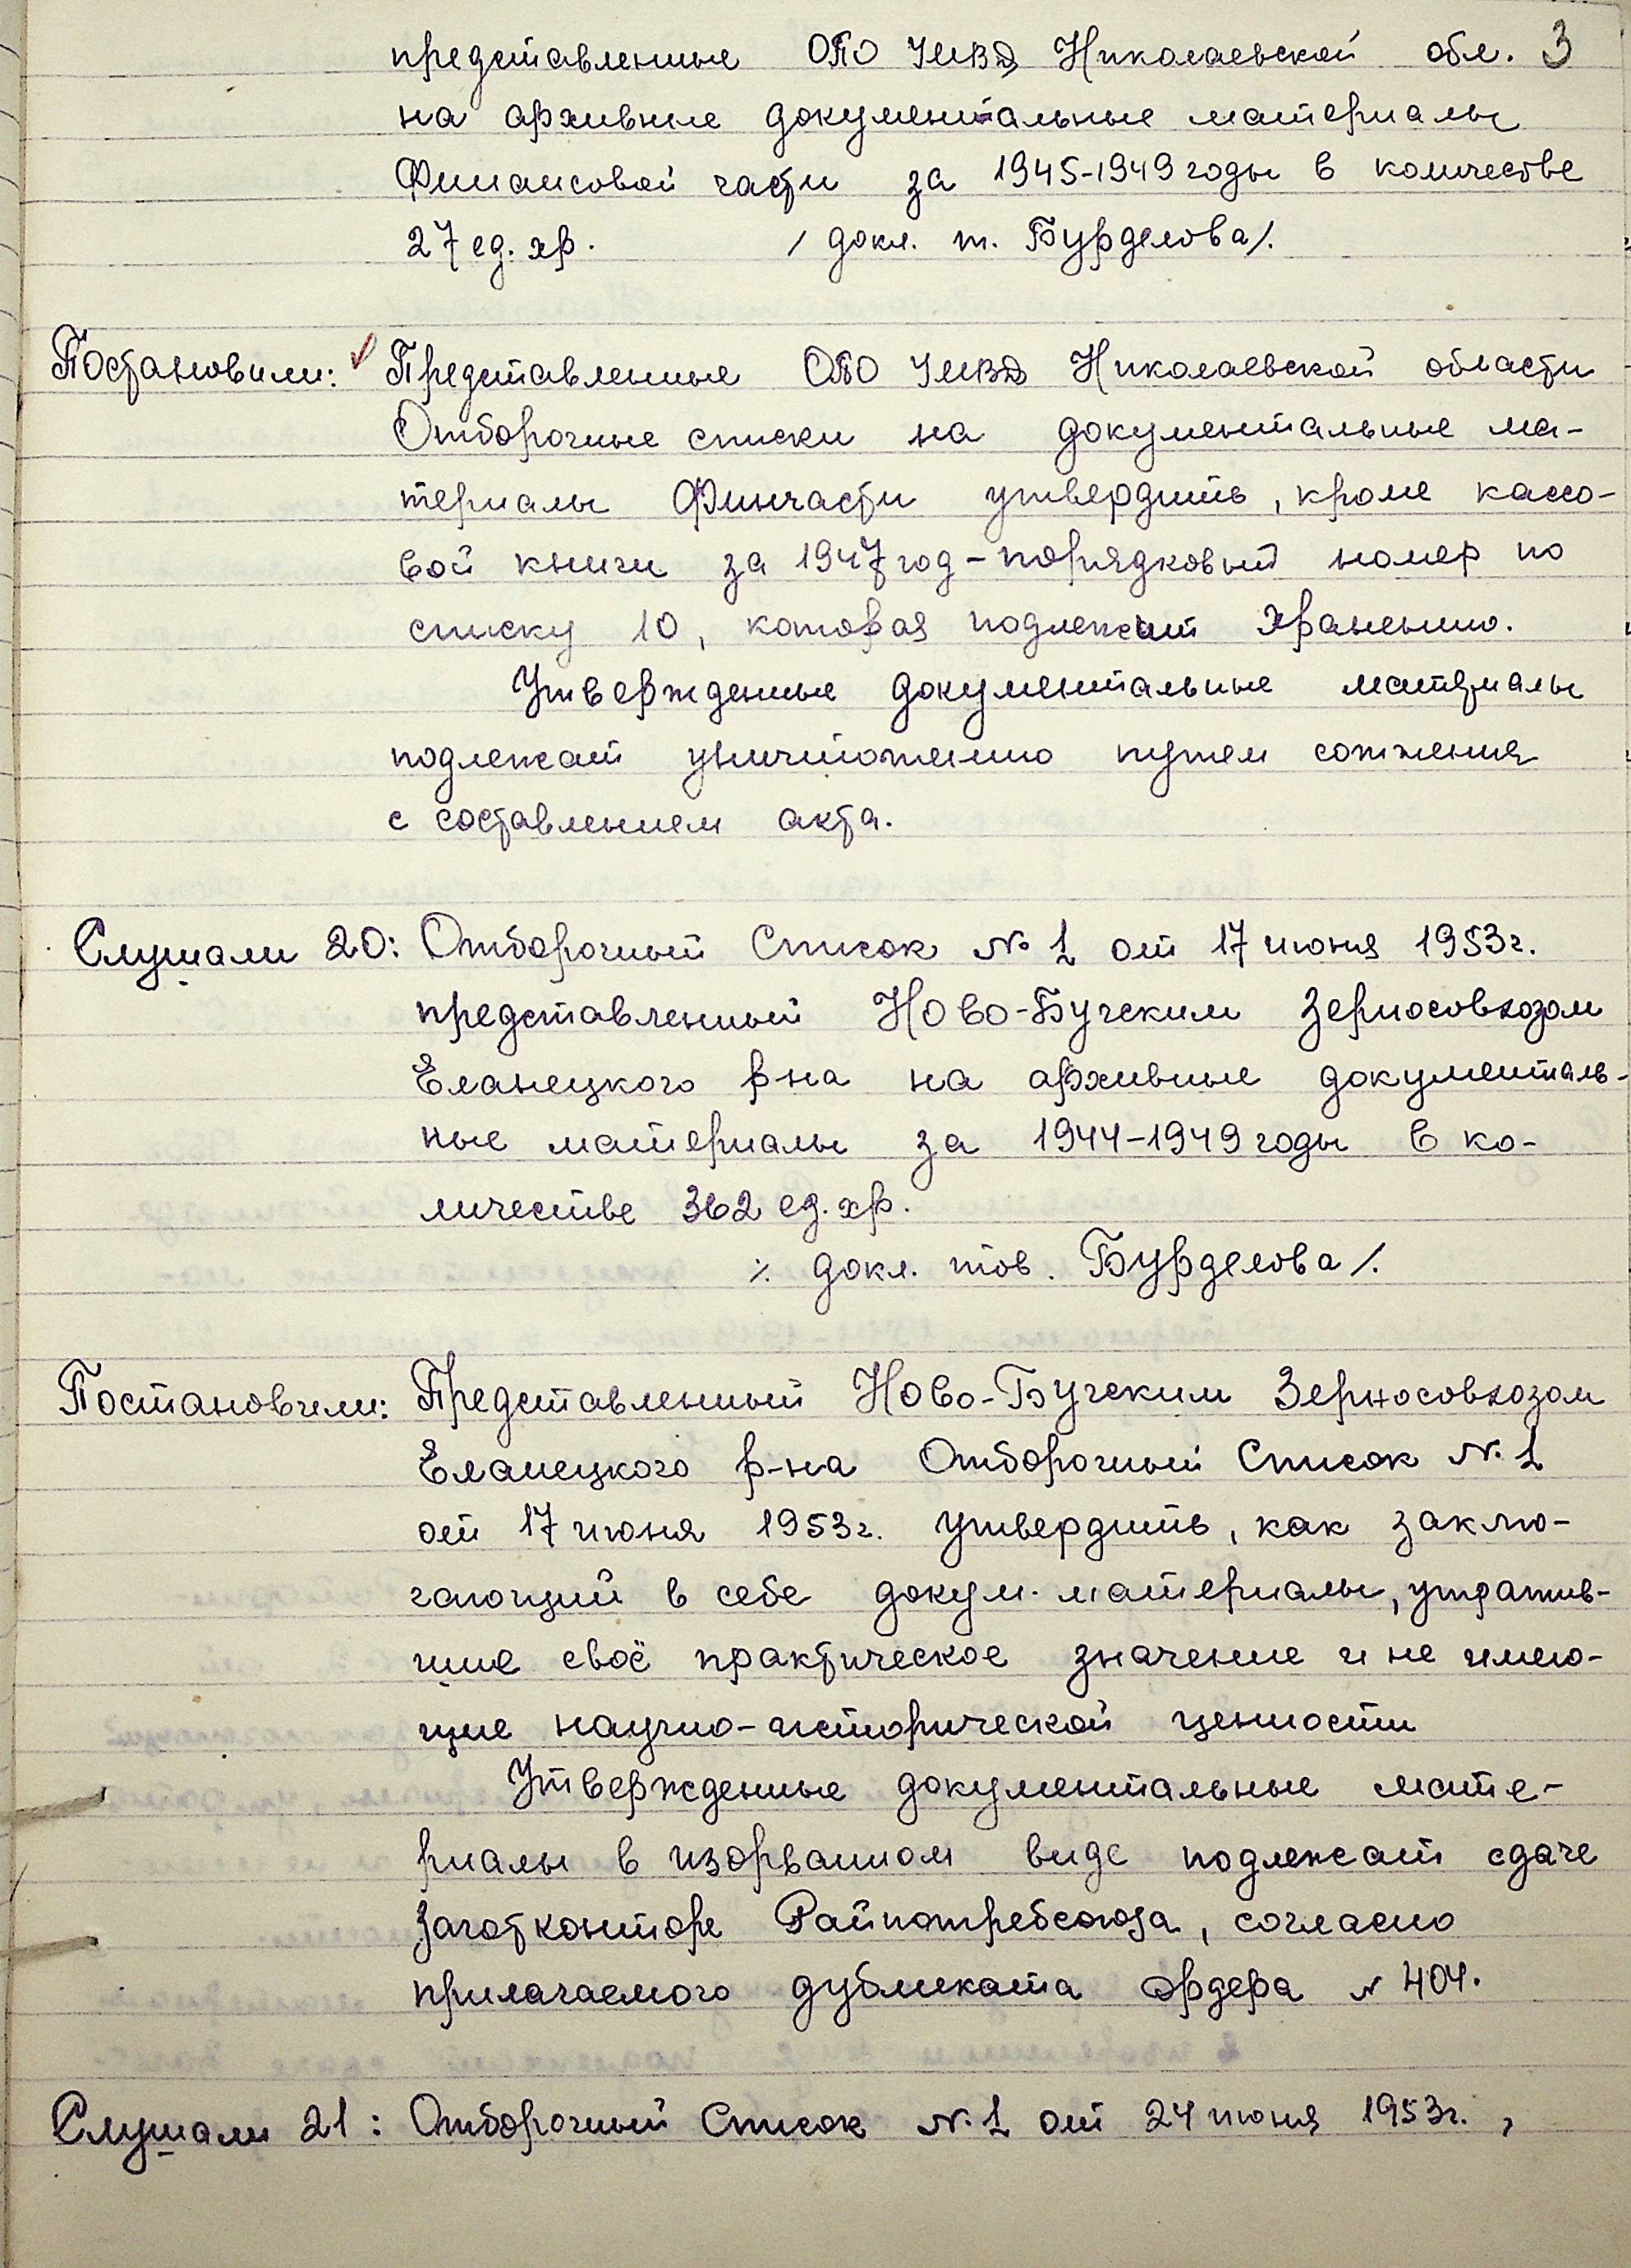 представленные ОПО УМВД Николаевской обл. 3
на архивные документальные материалы
Финансовой части за 1945-1949 годы в количестве
27 ед. хр. / докл. т. Бурделова/.
Постановили: Представленные ОПО УМВД Николаевской области
Отборочные списки на документальные ма-
териалы Финчасти утвердить, кроме кассо-
вой книги за 1947 год - порядковый номер по
списку 10, которая подлежит хранению.
Утвержденные документальные материалы
подлежат уничтожению путем сожжения
с составлением акта.
Слушали 20: Отборочный Список № 1 от 17 июня 1953г.
представленный Ново-Бугским Зерносовхозом
Еланецкого р-на на архивные документаль-
ные материалы за 1944-1949 годы в ко-
личестве 362 ед. хр.
/. докл. тов. Бурделова /.
Постановили: Представленный Ново-Бугским Зерносовхозом
Еланецкого р-на Отборочный Список №1
от 17 июня 1953г. утвердить, как заклю-
чающий в себе докум. материалы, утратив-
шие своё практическое значение и не имею-
щие научно-исторической ценности
Утвержденные документальные мате-
риалы в изорванном виде подлежат сдаче
Заготконторе Райпотребсоюза, согласно
прилагаемого дубликата ордера № 404.
Слушали 21: Отборочный Список №1 от 24 июня 1953г.,